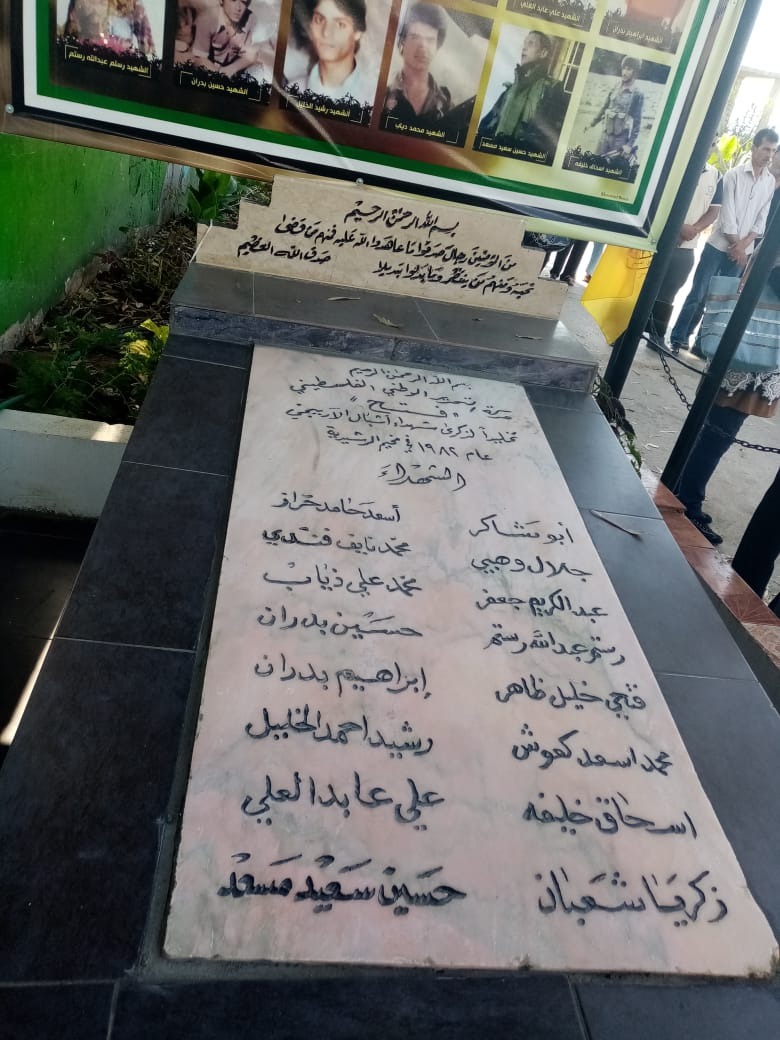 الشهيد علي عابد العلي
الشهيد ابراهيم بدران
الشهيد رستم عبدالله رستم
الشهيد حسين بدران
الشهيد رشيد الخليل
الشهيد محمد ذيب
الشهيد حسين سعيد مسعد
الشهيد اسحاق خليفه
بسم الله الرحمن الرحيم
من المؤمنين رجال صدقوا ما عاهدوا الله عليه فمنهم من قضى
نحبه ومنهم من ينتظر وما بدلوا تبديلا
صدق الله العظيم
بسم الله الرحمن الرحيم
حركة التحرير الوطني الفلسطيني
"فتح"
تخليداً لذكرى شهداء أشبال الآر بي جي
عام ١٩٨٢ في مخيم الرشيدية
الشهداء
أبو شاكر
أسعد حامد
جلال وهبي
محمد نايف قندي
عبد الكريم جعفر
محمد علي ذياب
رستم عبدالله رستم
حسين بدران
فتحي خليل ظاهر
إبراهيم بدران
محمد اسعد كعوش
رشيد احمد الخليل
اسحاق خليفه
علي عابد العلي
زكريا شعبان
حسين سعيد مسعد